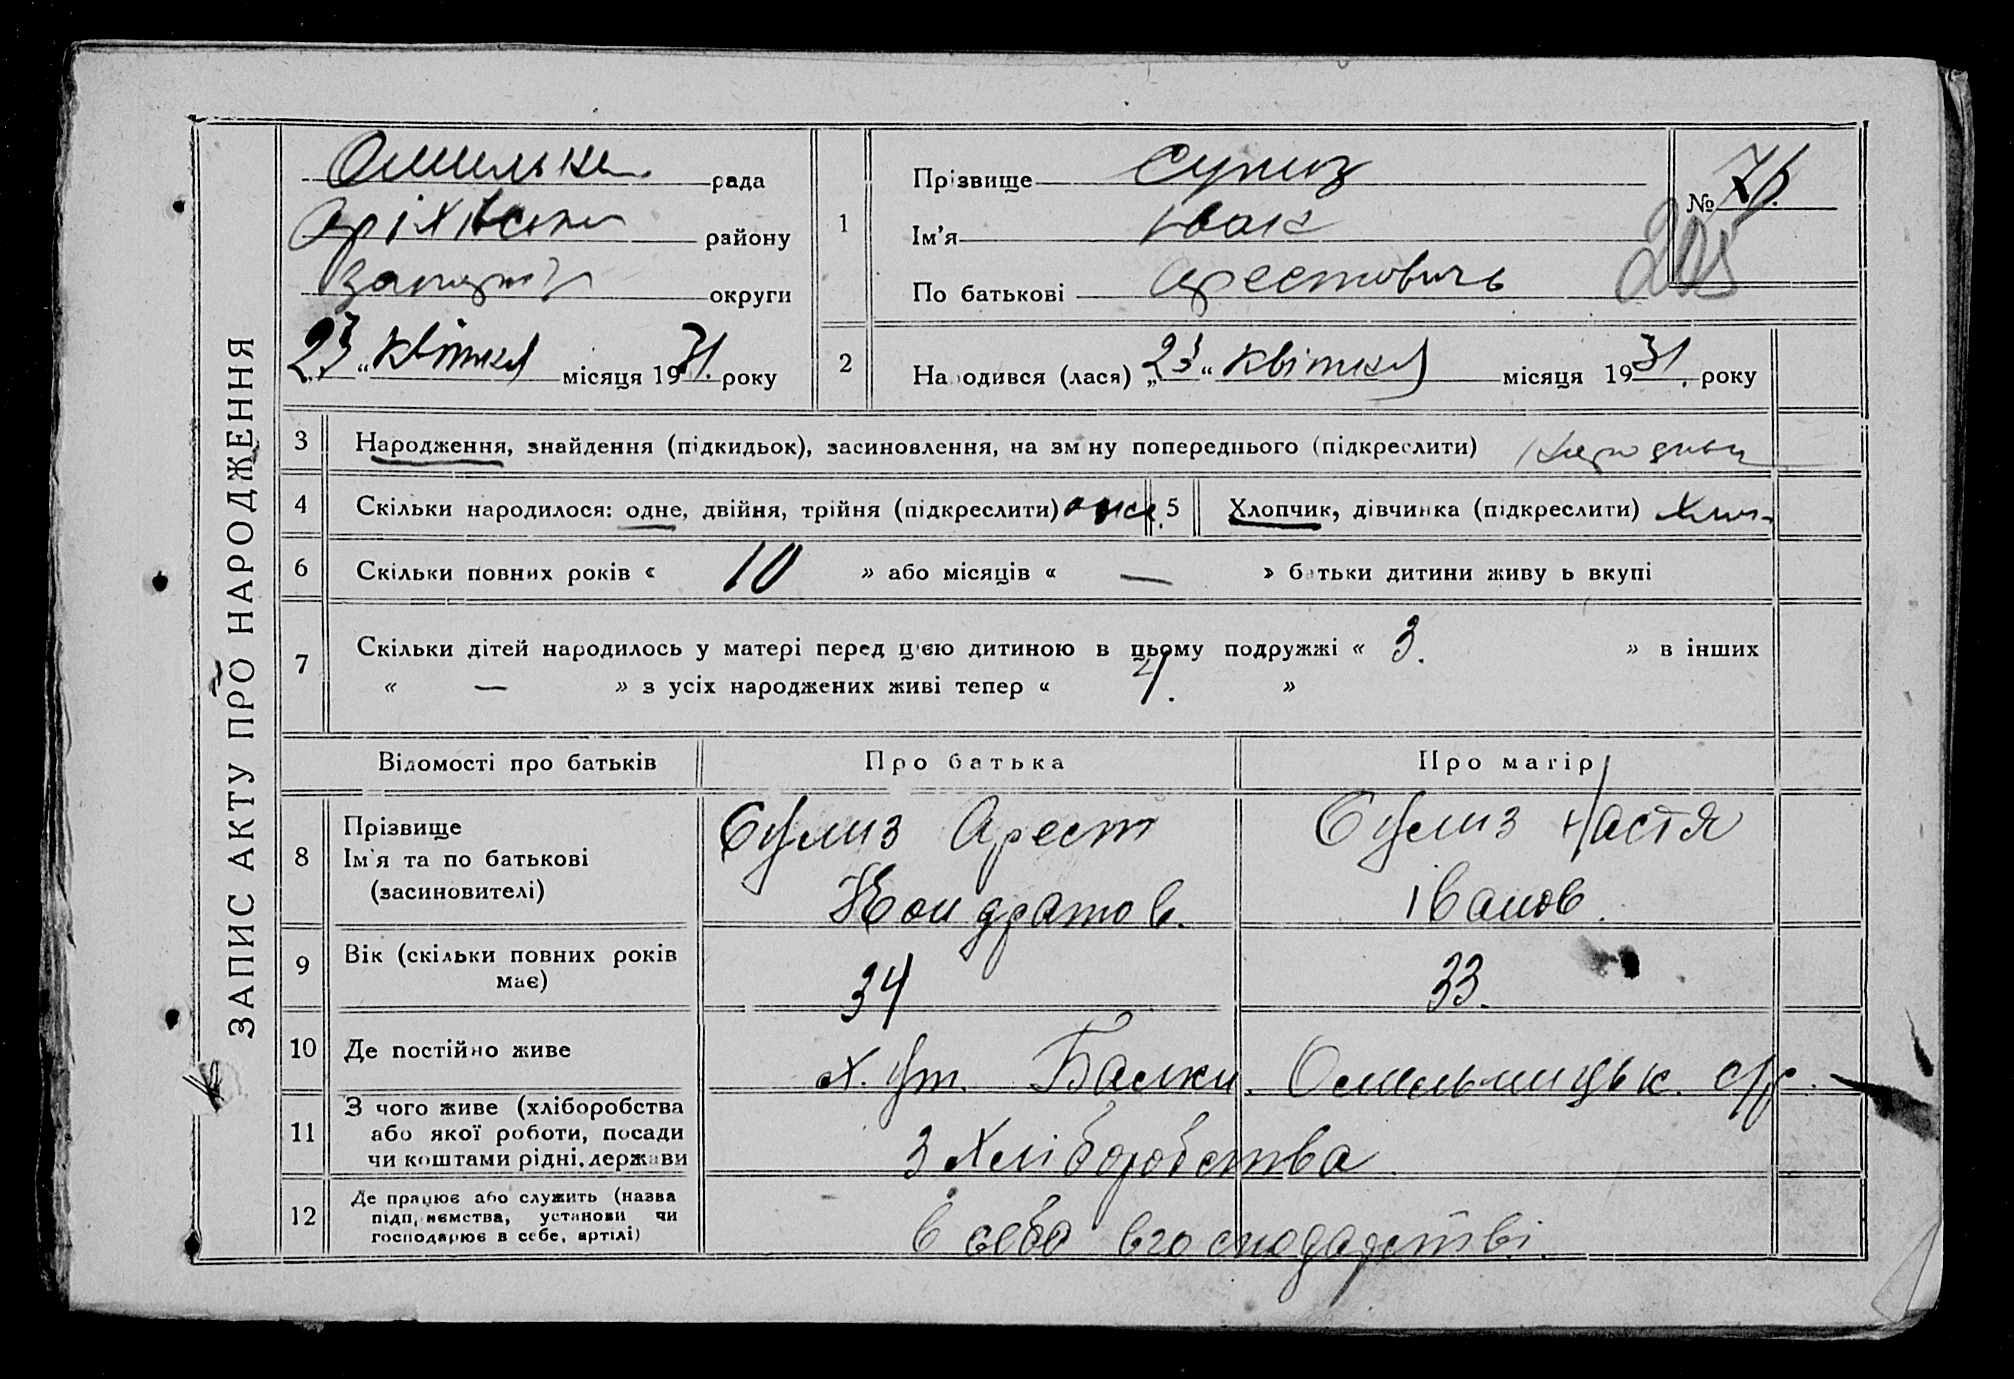 ЗАПИС АКТУ ПРО НАРОДЖЕННЯ
Омельн. рада
Оріхівськ району
Запоріз округи
"23" квітня місяця 1931. року
1
Прізвище Сулиз
Ім'я Іван
По батькові Арестовичь
№ 76.
205
2
Народився (лася) „23" квітня місяця 1931. року
3 Народження, знайдення (підкидьок), засиновлення, на зміну попереднього (підкреслити)
4 Скільки народилося: одне, двійня, трійня (підкреслити) одне.
5 Хлопчик, дівчинка (підкреслити) Хлоп-
6 Скільки повних років « 10 » або місяців « — » батьки дитини живуть вкупі
7 Скільки дітей народилось у матері перед цією дитиною в цьому подружжі « 3. » в інших
« — » з усіх народжених живі тепер « 4. »
Відомості про батьків Про батька Про матір
8 Прізвище
Ім'я та по батькові
(засиновителі)
Сулиз Арест
Кондратов.
Сулиз Настя
Іванов.
9 Вік (скільки повних років
має)
34 33.
10 Де постійно живе Х.ут. Балки. Омельницьк. с/р.
11 З чого живе (хліборобства
або якої роботи, посади
чи коштами рідні, держави
з Хліборобства
12 Де працює або служить (назва
підприємства, установи чи
господарює в себе, артілі)
в себе в господарстві.